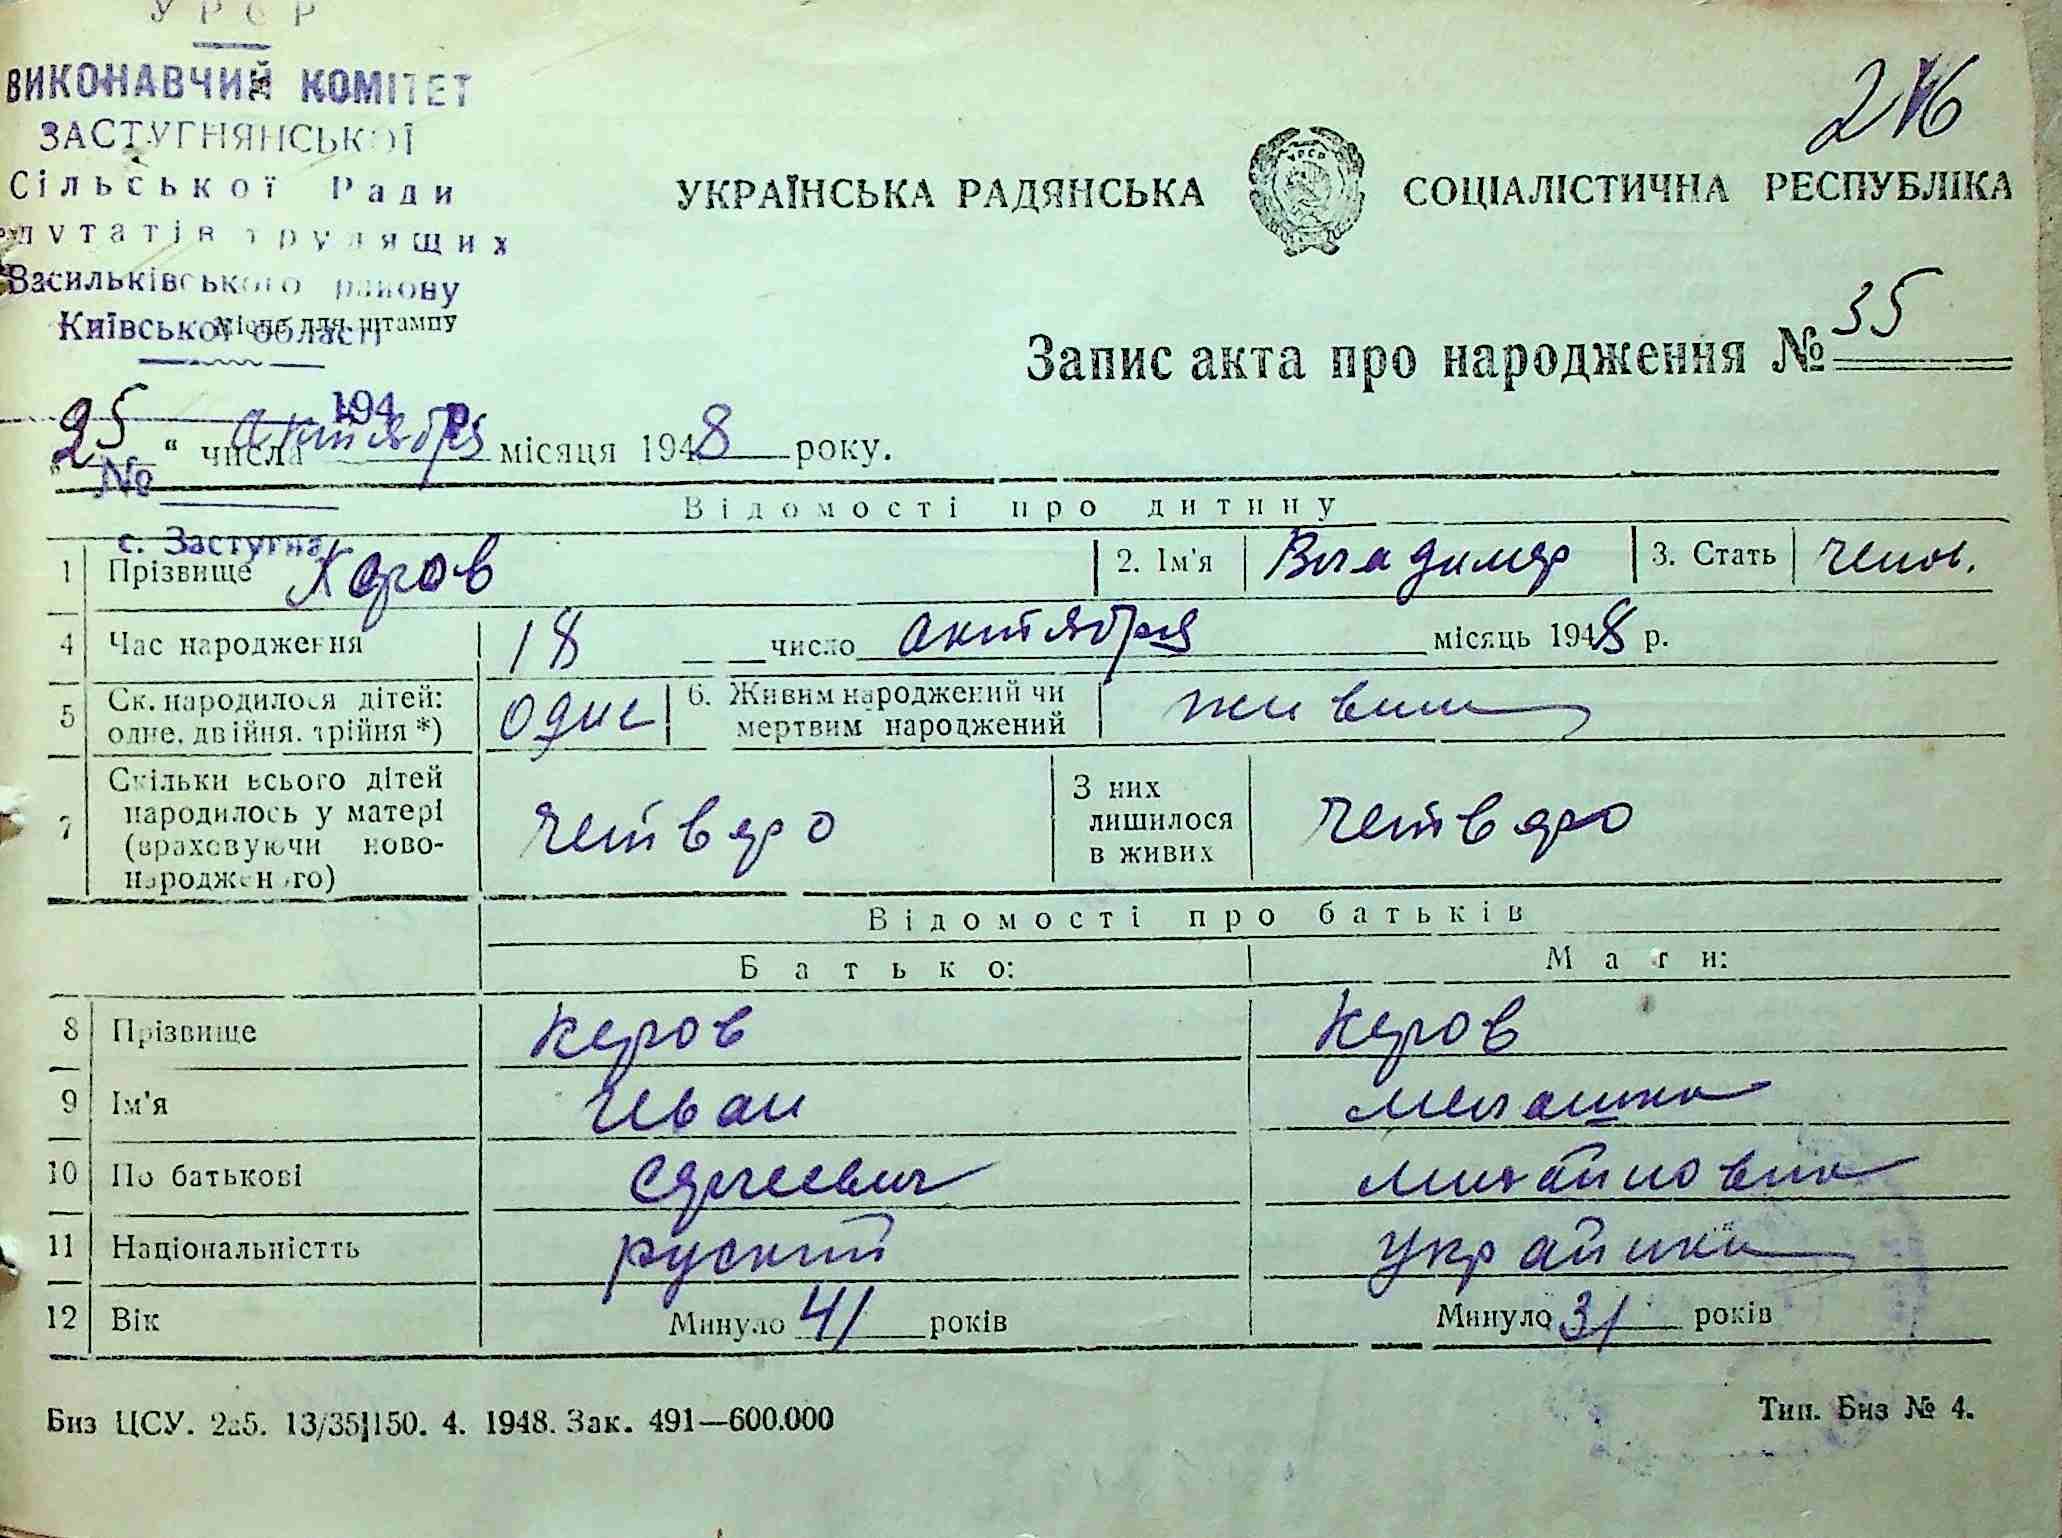 УРСР
ВИКОНАВЧИЙ КОМІТЕТ
ЗАСТУГНЯНСЬКОЇ
Сільської Ради
депутатів трудящих
Васильківського району
Київської області
Місце для штампу
194 р.
№
с. Застугна
216
УКРАЇНСЬКА РАДЯНСЬКА СОЦІАЛІСТИЧНА РЕСПУБЛІКА
УРСР
Запис акта про народження № 35
„25“ числа октября місяця 1948 року.
Відомості про дитину
1 Прізвище Керов 2. Ім'я Владимер 3. Стать чолов.
4 Час народження 18 число октября місяць 1948 р.
5 Ск. народилося дітей: одне, двійня, трійня *) одне 6. Живим народжений чи мертвим народжений живим
7 Скільки всього дітей народилось у матері (враховуючи новонародженого) четверо З них лишилося в живих четверо
Відомості про батьків
Батько: Мати:
8 Прізвище Керов Керов
9 Ім'я Иван Мелашка
10 По батькові Сергеевич Михайловна
11 Національністть руский украйнка
12 Вік Минуло 41 років Минуло 31 років
Биз ЦСУ. 2а5. 13/35|150. 4. 1948. Зак. 491—600.000
Тип. Биз № 4.